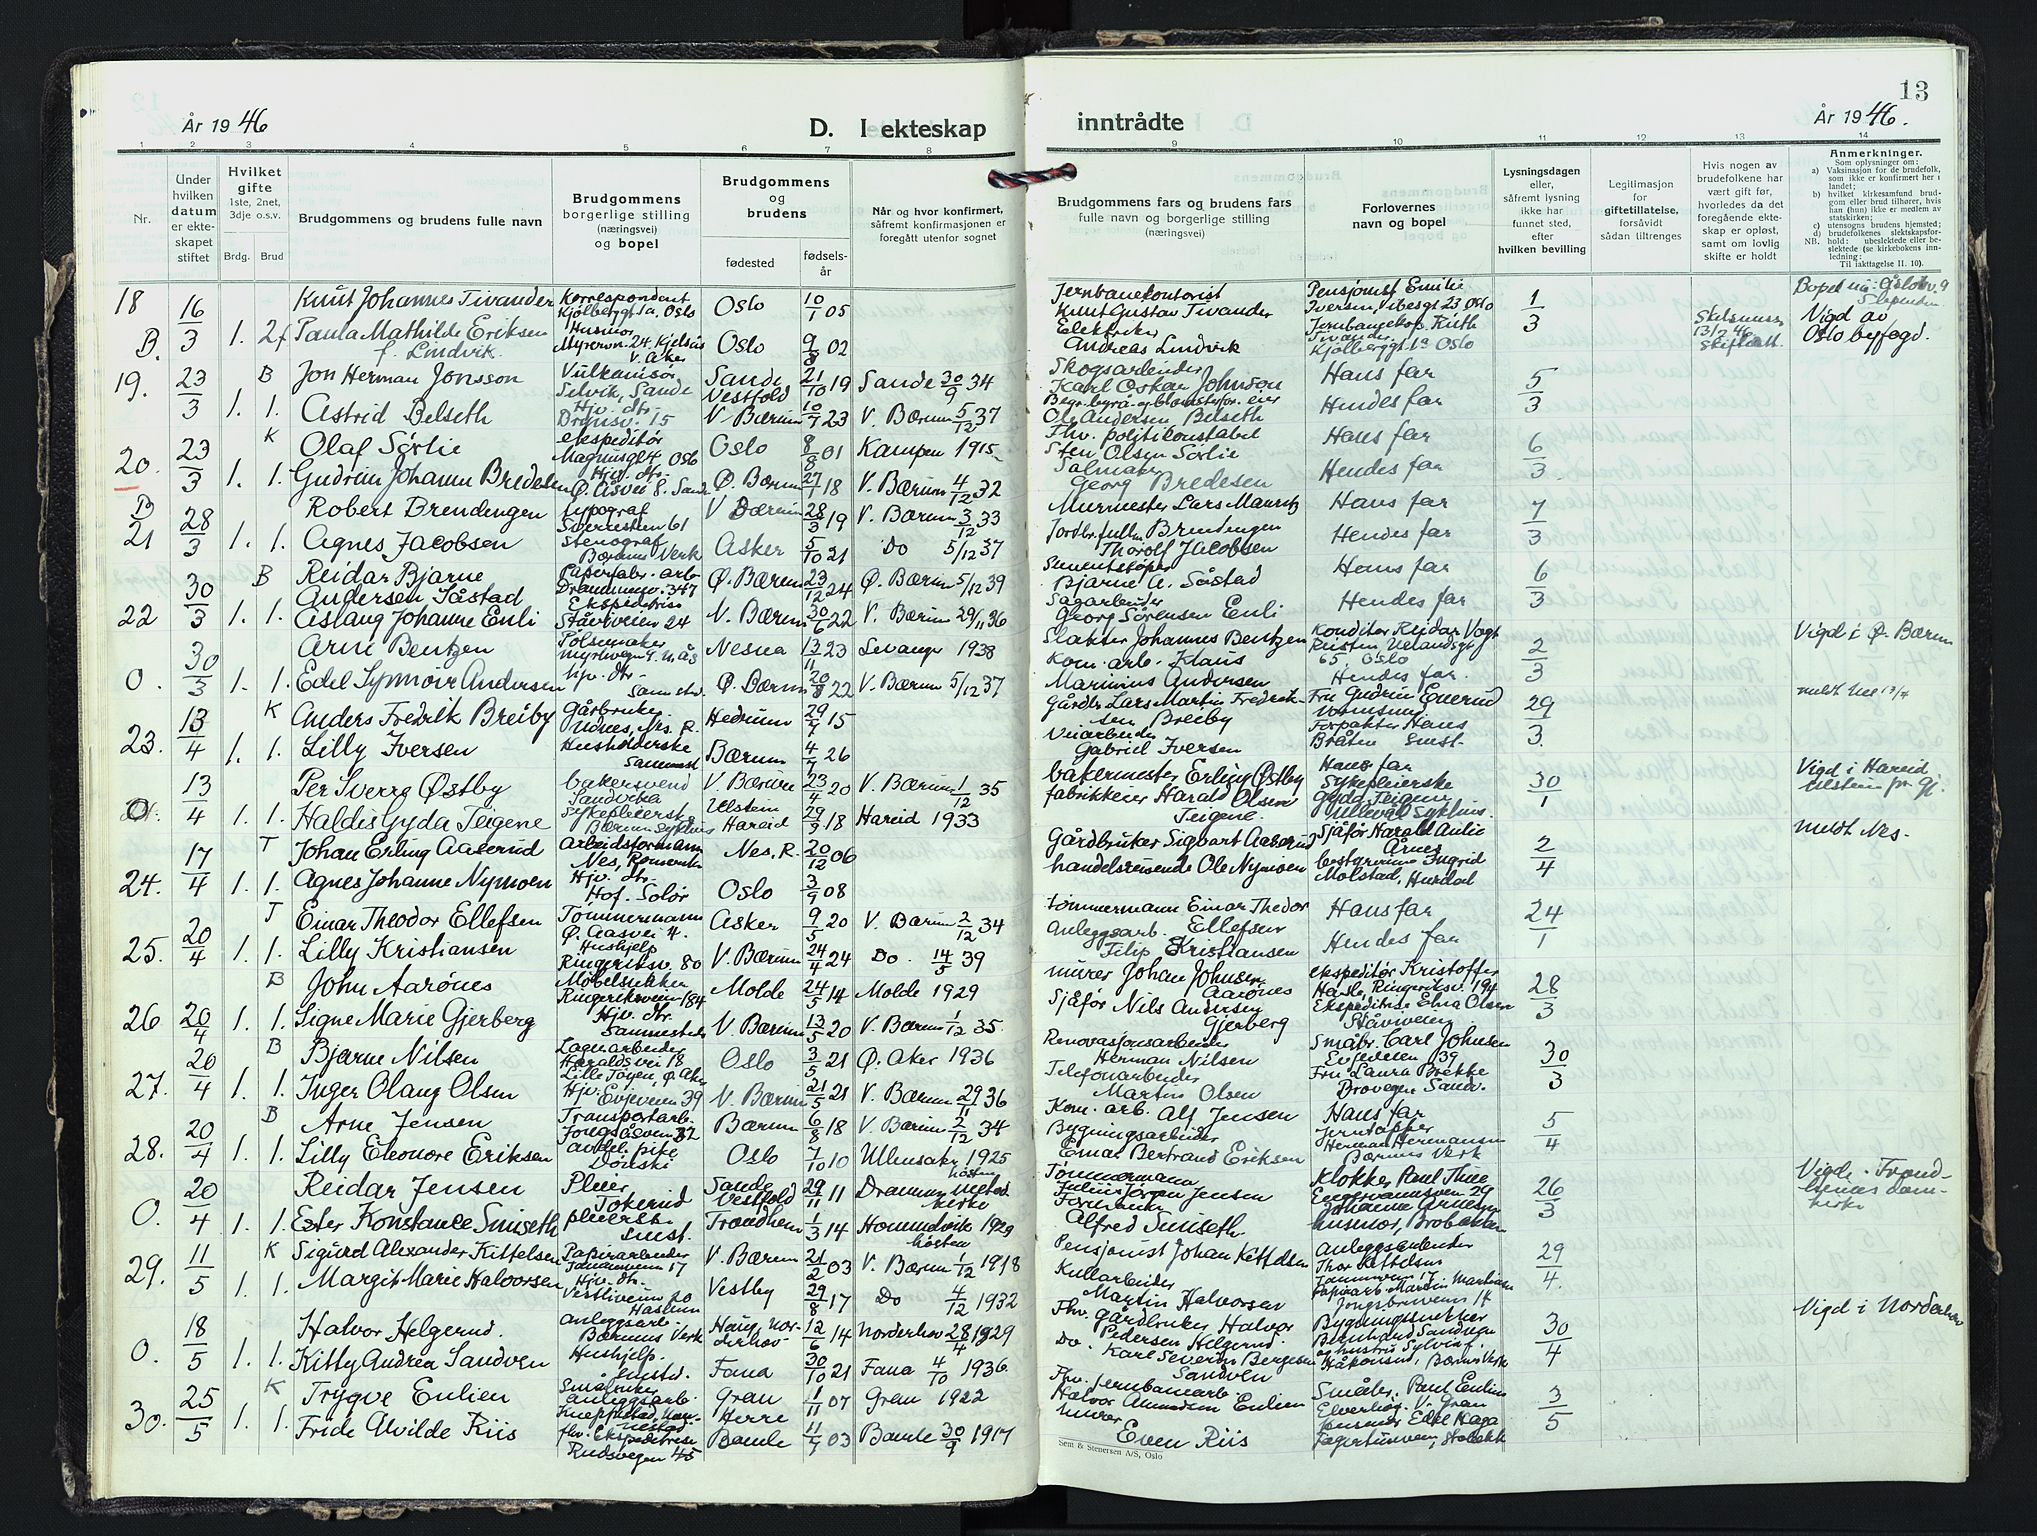 13
År 1946
D. I ekteskap
inntrådte
År 1946.
1 2 3 4 5 6 7 8 9 10 11 12 13 14
Nr.
Under hvilken datum er ekteskapet stiftet
Hvilket gifte
1ste, 2net, 3dje o.s.v.
Brdg. Brud
Brudgommens og brudens fulle navn
Brudgommens borgerlige stilling (næringsvei) og bopel
Brudgommens og brudens
fødested
fødselsår
Når og hvor konfirmert, såfremt konfirmasjonen er foregått utenfor sognet
Brudgommens fars og brudens fars fulle navn og borgerlige stilling (næringsvei)
Forlovernes navn og bopel
Lysningsdagen eller, såfremt lysning ikke har funnet sted, efter hvilken bevilling
Legitimasjon for giftetillatelse, forsåvidt sådan tiltrenges
Hvis nogen av brudefolkene har vært gift før, hvorledes da det foregående ekteskap er opløst, samt om lovlig skifte er holdt
Anmerkninger.
Som oplysninger om:
a) Vaksinasjon for de brudefolk, som ikke er konfirmert her i landet;
b) hvilket kirkesamfund brudgom eller brud tilhører, hvis han (hun) ikke er medlem av statskirken;
c) utensogns brudens hjemsted;
d) brudefolkenes slektskapsforhold: ubeslektede eller beslektede (se kirkebokens innledning:
NB. Til iakttagelse II. 10).
18 16/3 Knut Johannes Tivander Korrespondent Kjølberggt 1a, Oslo Oslo 10/1 05 Jernbanekontorist Knut Gustav Tivander Pensjonist Emilie Iversen, 23 Oslo 1/3
B. 1. 2 Paula Mathilde Eriksen f. Lindvik Husmor Myrerv. 24, Kjelsås V. Aker Oslo 9/8 02 Elektriker Andreas Lindvik Ruth Tivander Kjølberggt 1a Oslo Vigd av Oslo byfogd.
19. 23/3 B Jon Herman Jonsson Vulkanisør Selvik, Sande Sande Vestfold 21/10 19 Sande 30/9 34 Skogsarbeider Karl Oskar Johnson Hans far 5/3
1. 1. Astrid Belseth Hjv. dtr. 15 V. Bærum 10/7 23 V. Bærum 5/12 37 Ole Andersen Belseth Hendes far
20. 23/3 K Olaf Sørlie ekspeditør Magnusgt 4 Oslo Oslo 8/8 01 Kampen 1915 Fhv. politikonstabel Sten Olsen Sørlie Hans far 6/3
1. 1. Gudrun Johanne Bredesen Hjv. dtr. Ø. Åsvei 8. Sandv. Ø. Bærum 27/1 18 V. Bærum 4/12 32 Salmaker Georg Bredesen Hendes far
B 21 28/3 Robert Brendengen typograf 61 V Bærum 28/3 19 V. Bærum 3/12 33 Murmester Lars Mauritz Brendengen Hans far 7/3
1. 1. Agnes Jacobsen Stenograf Bærums Verk Asker 5/10 21 Do 5/12 37 Thorolf Jacobsen Hendes far
22 30/3 B Reidar Bjarne Andersen Såstad Papirfabr. arb. Drammensv. 347 Ø. Bærum 23/12 24 Ø. Bærum 5/12 39 Sementstøper Bjarne A. Såstad Hans far 6/3
1. 1. Aslaug Johanne Enli Ekspeditrise Ståviveien 24 V. Bærum 30/6 22 V. Bærum 29/11 36 Sagarbeider Georg Sørensen Enli Hendes far
0. 30/3 Arne Bentzen Pølsemaker Nesna 13/11 23 Levanger 1938 Slakter Johannes Bentzen Konditor Reidar Vogt 65, Oslo 2/3 Vigd i Ø. Bærum
1. 1. Edel Synnøve Andersen hjv. dtr. Samme stv. Ø. Bærum 20/8 22 V. Bærum 5/12 37 Kom. arb. Klaus Marinius Andersen Hendes far.
23. 13/4 K Anders Fredrik Breiby Gårdbruker Udnes, Nes. R. Hedrum 29/7 15 Gårdbr. Lars Martin Fredriksen Breiby Fru Gudrun Enerud Vormsund 29/3 meldt Nes 13/4
1. 1. Lilly Iversen Husholderske Bærum 4/7 26 Veiarbeider Gabriel Iversen Forpakter Hans Bråten Smst.
0 13/4 Per Sverre Østby bakersvend Sandvika V. Bærum 23/4 20 V. Bærum 1/12 35 bakermester Erling Østby Hans far 30/1 Vigd i Hareid
1. 1. Haldis Gyda Teigene Sykepleierske Bærum Sykhus Ulstein Hareid 29/9 18 Hareid 1933 fabrikkeier Harald Olsen Teigene. Sykepleierske Gyda Teigene Ullevål Sykhus.
24. 17/4 T Johan Erling Aaserud Arbeidsformann Nes, Romerike Nes, R. 20/12 06 Gårdbruker Sigvart Aaserud Sjåfør Harald Aulie Årnes 2/4 meldt Nes.
1. 1. Agnes Johanne Nymoen Hjv. dtr. Hof. Solør Oslo 3/9 08 handelsreisende Ole Nymoen bestyrerinne Ingrid Molstad, Hurdal
25. 20/4 T Einar Theodor Ellefsen Tømmermann Ø. Aasvei 4. Asker 9/5 20 V. Bærum 2/12 34 tømmermann Einar Thedor Ellefsen Hans far 24/1
1. 1. Lilly Kristiansen Hushjelp Ringeriksv. 80 V. Bærum 24/4 24 Do. 14/5 39 Anleggsarb. Filip Kristiansen Hendes far
26 20/4 B John Aarönes Møbelsnekker Ringeriksveien 184 Molde 24/5 14 Molde 1929 murer Johan Johnsen Aarönes ekspeditør Kristoffer Hasle, Ringeriksv. 194 28/3
1. 1. Signe Marie Gjerberg Hjv. dtr. Sammesteds V. Bærum 13/5 20 V. Bærum 1/12 35. Sjåfør Nils Andersen Gjerberg Ekspeditrise Elna Olsen Ståviveien
27. 20/4 B Bjarne Nilsen Lagerarbeider Haraldsvei 18 Lille Tøyen, Ø. Aker Oslo 3/5 21 Ø. Aker 1936 Renovasjonsarbeider Herman Nilsen Småbr. Carl Johnsen Evjeveien 39 30/3
1. 1. Inger Olaug Olsen Hjv. Evjeveien 39 V. Bærum 21/5 21 V. Bærum 29/11 36 Telefonarbeider Martin Olsen Fru Laura Brekke Brovegen Sandv.
28. 20/4 B Arne Jensen Transportarb. Jongsåsveien 32 Bærum 6/8 18 V. Bærum 2/12 34 Kom. arb. Alf Jensen Hans far 5/4
1. 1. Lilly Eleonore Eriksen avdel. pike Oslo 7/10 10 Ullensaker 1925 høsten Bygningsarbeider Einar Bertrand Eriksen Jerntapper Herman Hermansen Bærums Verk
0. 20/4 Reidar Jensen Pleier Tokerud Sande Vestfold 29/11 11 Drammen Tømmermann Julius Jörgen Jensen Klokker Paul Thue 29 26/3 Vigd i Trondhjems domkirke
1. 1. Ester Konstance Smiseth pleierske Smst. Trondheim 1/3 14 Hommelvik 1929 høsten Formann Alfred Smiseth husmor,
29. 11/5 K Sigurd Alexander Kittelsen Papirarbeider 17 V. Bærum 21/2 03 V. Bærum 1/12 1918 Pensjonist Johan Kittelsen Anleggsarbeider Thor Kittelsen 29/4.
1. 1. Margit Marie Halvorsen Hjv. dtr. Vestliveien 20 Haslum Vestby 29/8 17 Do 4/12 1932 Kullarbeider Martin Halvorsen Papirarb. Martin Martinsen Jongsbruveien 14
0. 18/5 Halvor Helgerud. Anleggsarb. Bærums Verk Haug, Norderhov 12/6 14 Norderhov 28/4 1929 Fhv. gårdbruker Halvor Pedersen Helgerud Bygningssnekker 30/4 Vigd i Norderhov
1. 1. Kitty Andrea Sandven Hushjelp. Smsted. Fana 30/10 21 Fana 4/10 1936 Do. Karl Severin Bergesen Sandven Bærums Verk
30. 25/5 K Trygve Enlien Småbruker anleggsarb. Gran 1/11 07 Gran 1922 Fhv. jernbanearb. Halvor Enlien Småbr. Paul Enlien Elverhøy, V. Gran 3/5
1. 1. Fride Alvilde Riis fhv. Ekspeditrise Rudsvegen 45 Herre Bamle 11/7 03 Bamle 30/9 1917 murer Even Riis
Sem & Stenersen A/S, Oslo